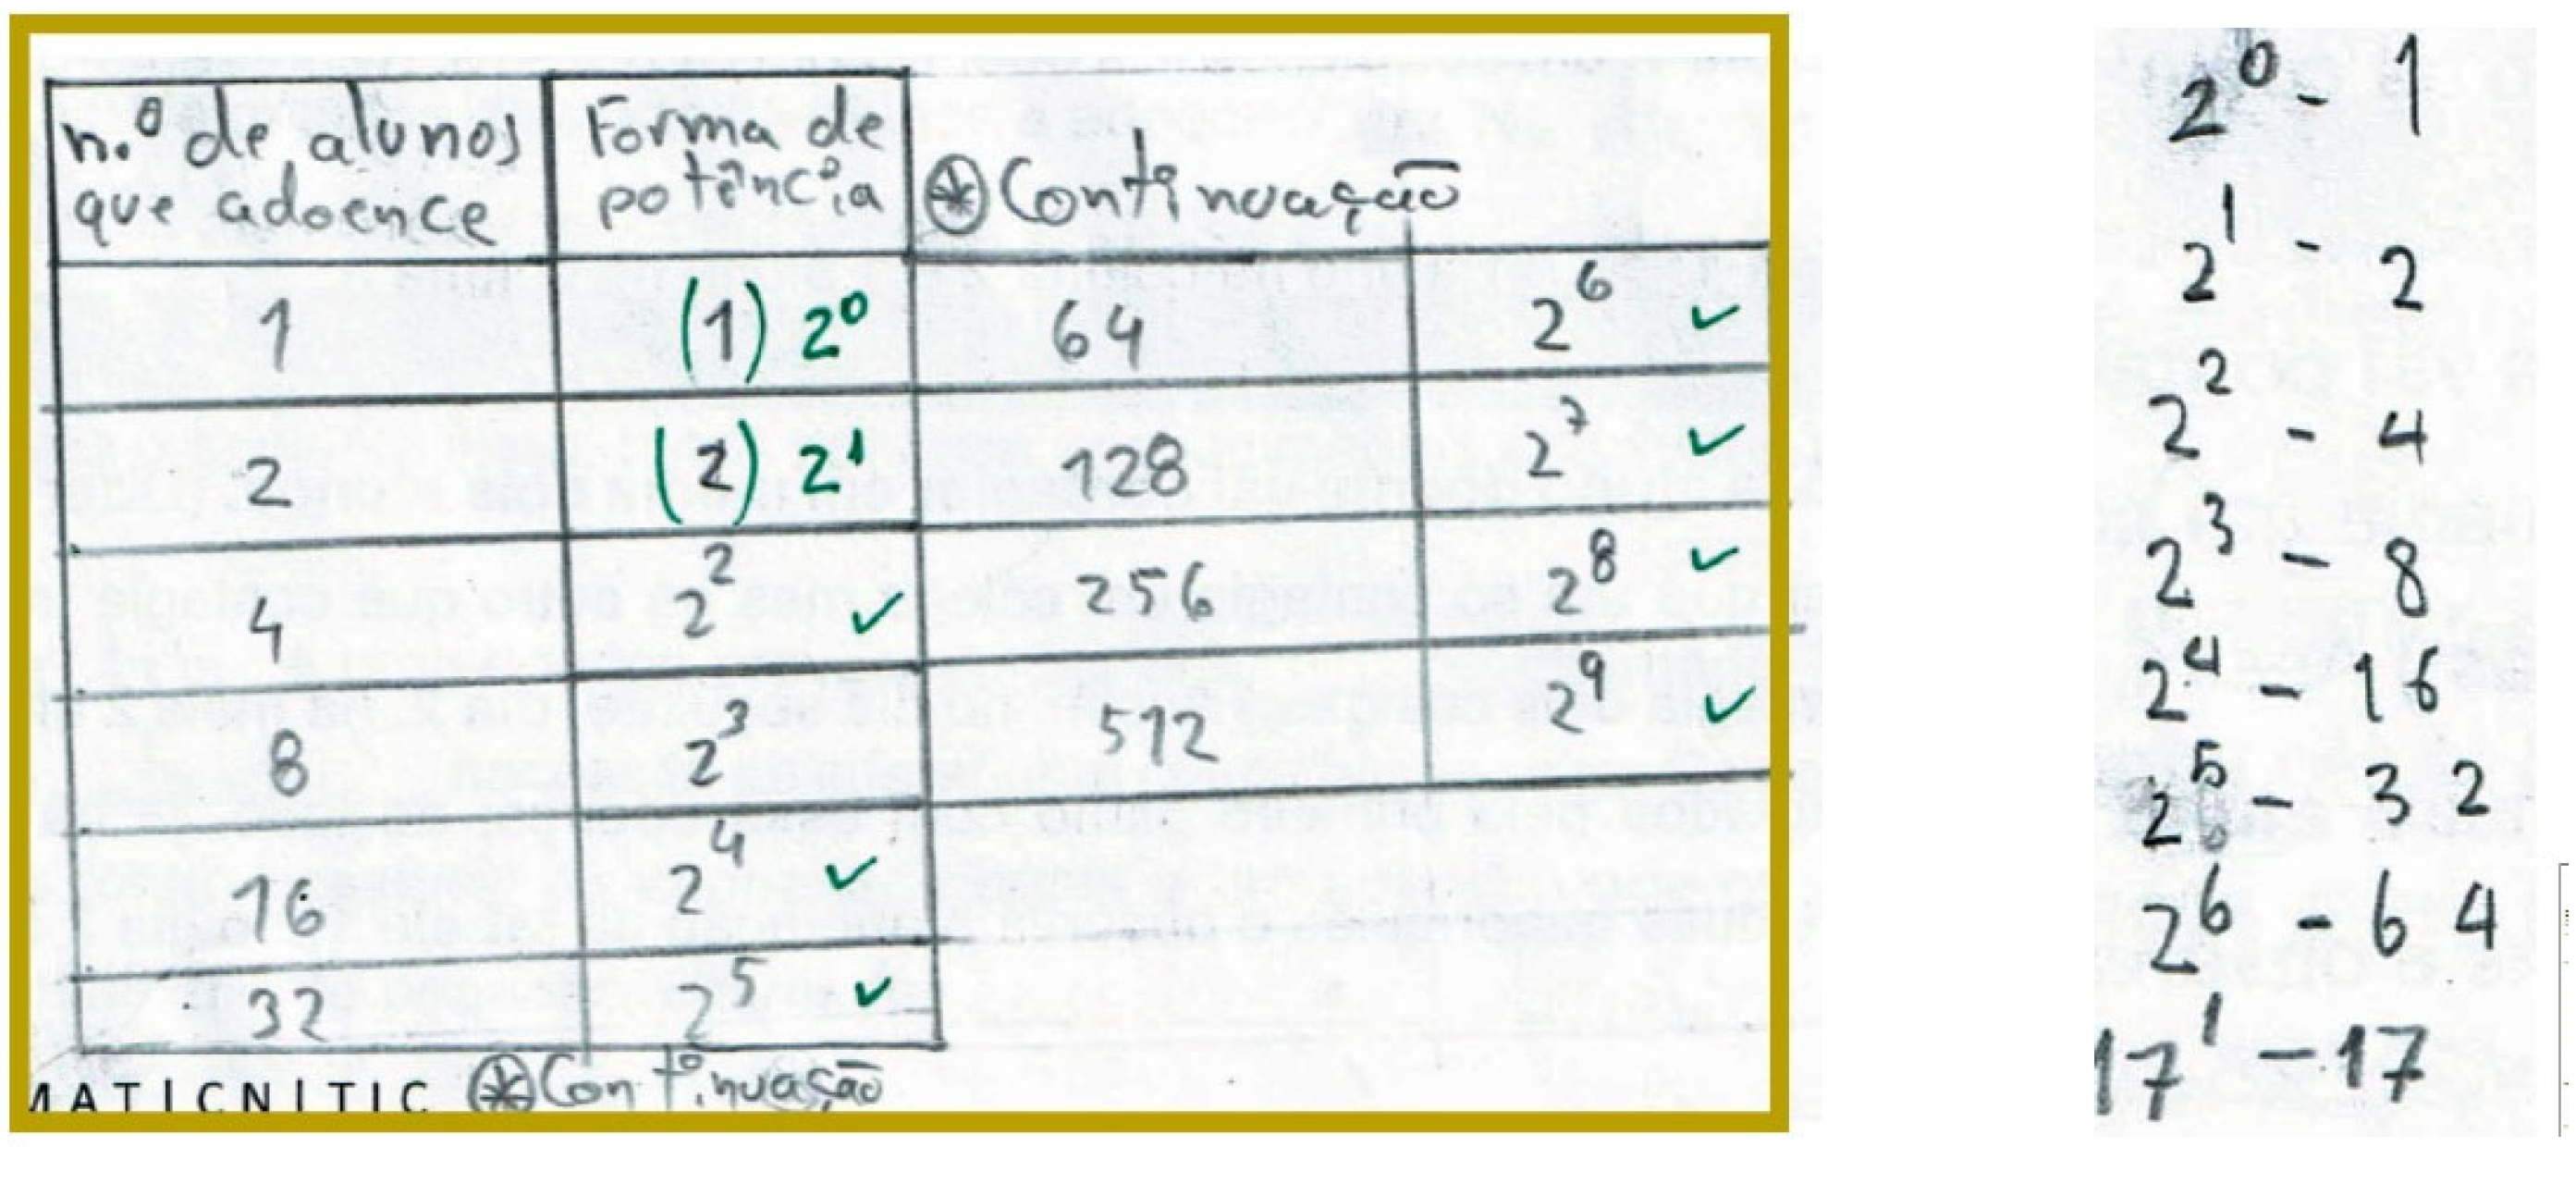 n.º de alunos que adoence | Forma de potência | ⊛ Continuação
1 | (1) 2⁰ | 64 | 2⁶ ✓
2 | (2) 2¹ | 128 | 2⁷ ✓
4 | 2² ✓ | 256 | 2⁸ ✓
8 | 2³ | 512 | 2⁹ ✓
16 | 2⁴ ✓
32 | 2⁵ ✓
MAT|CN|TIC ⊛ Continuação
2⁰ - 1
2¹ - 2
2² - 4
2³ - 8
2⁴ - 16
2⁵ - 32
2⁶ - 64
17¹ - 17